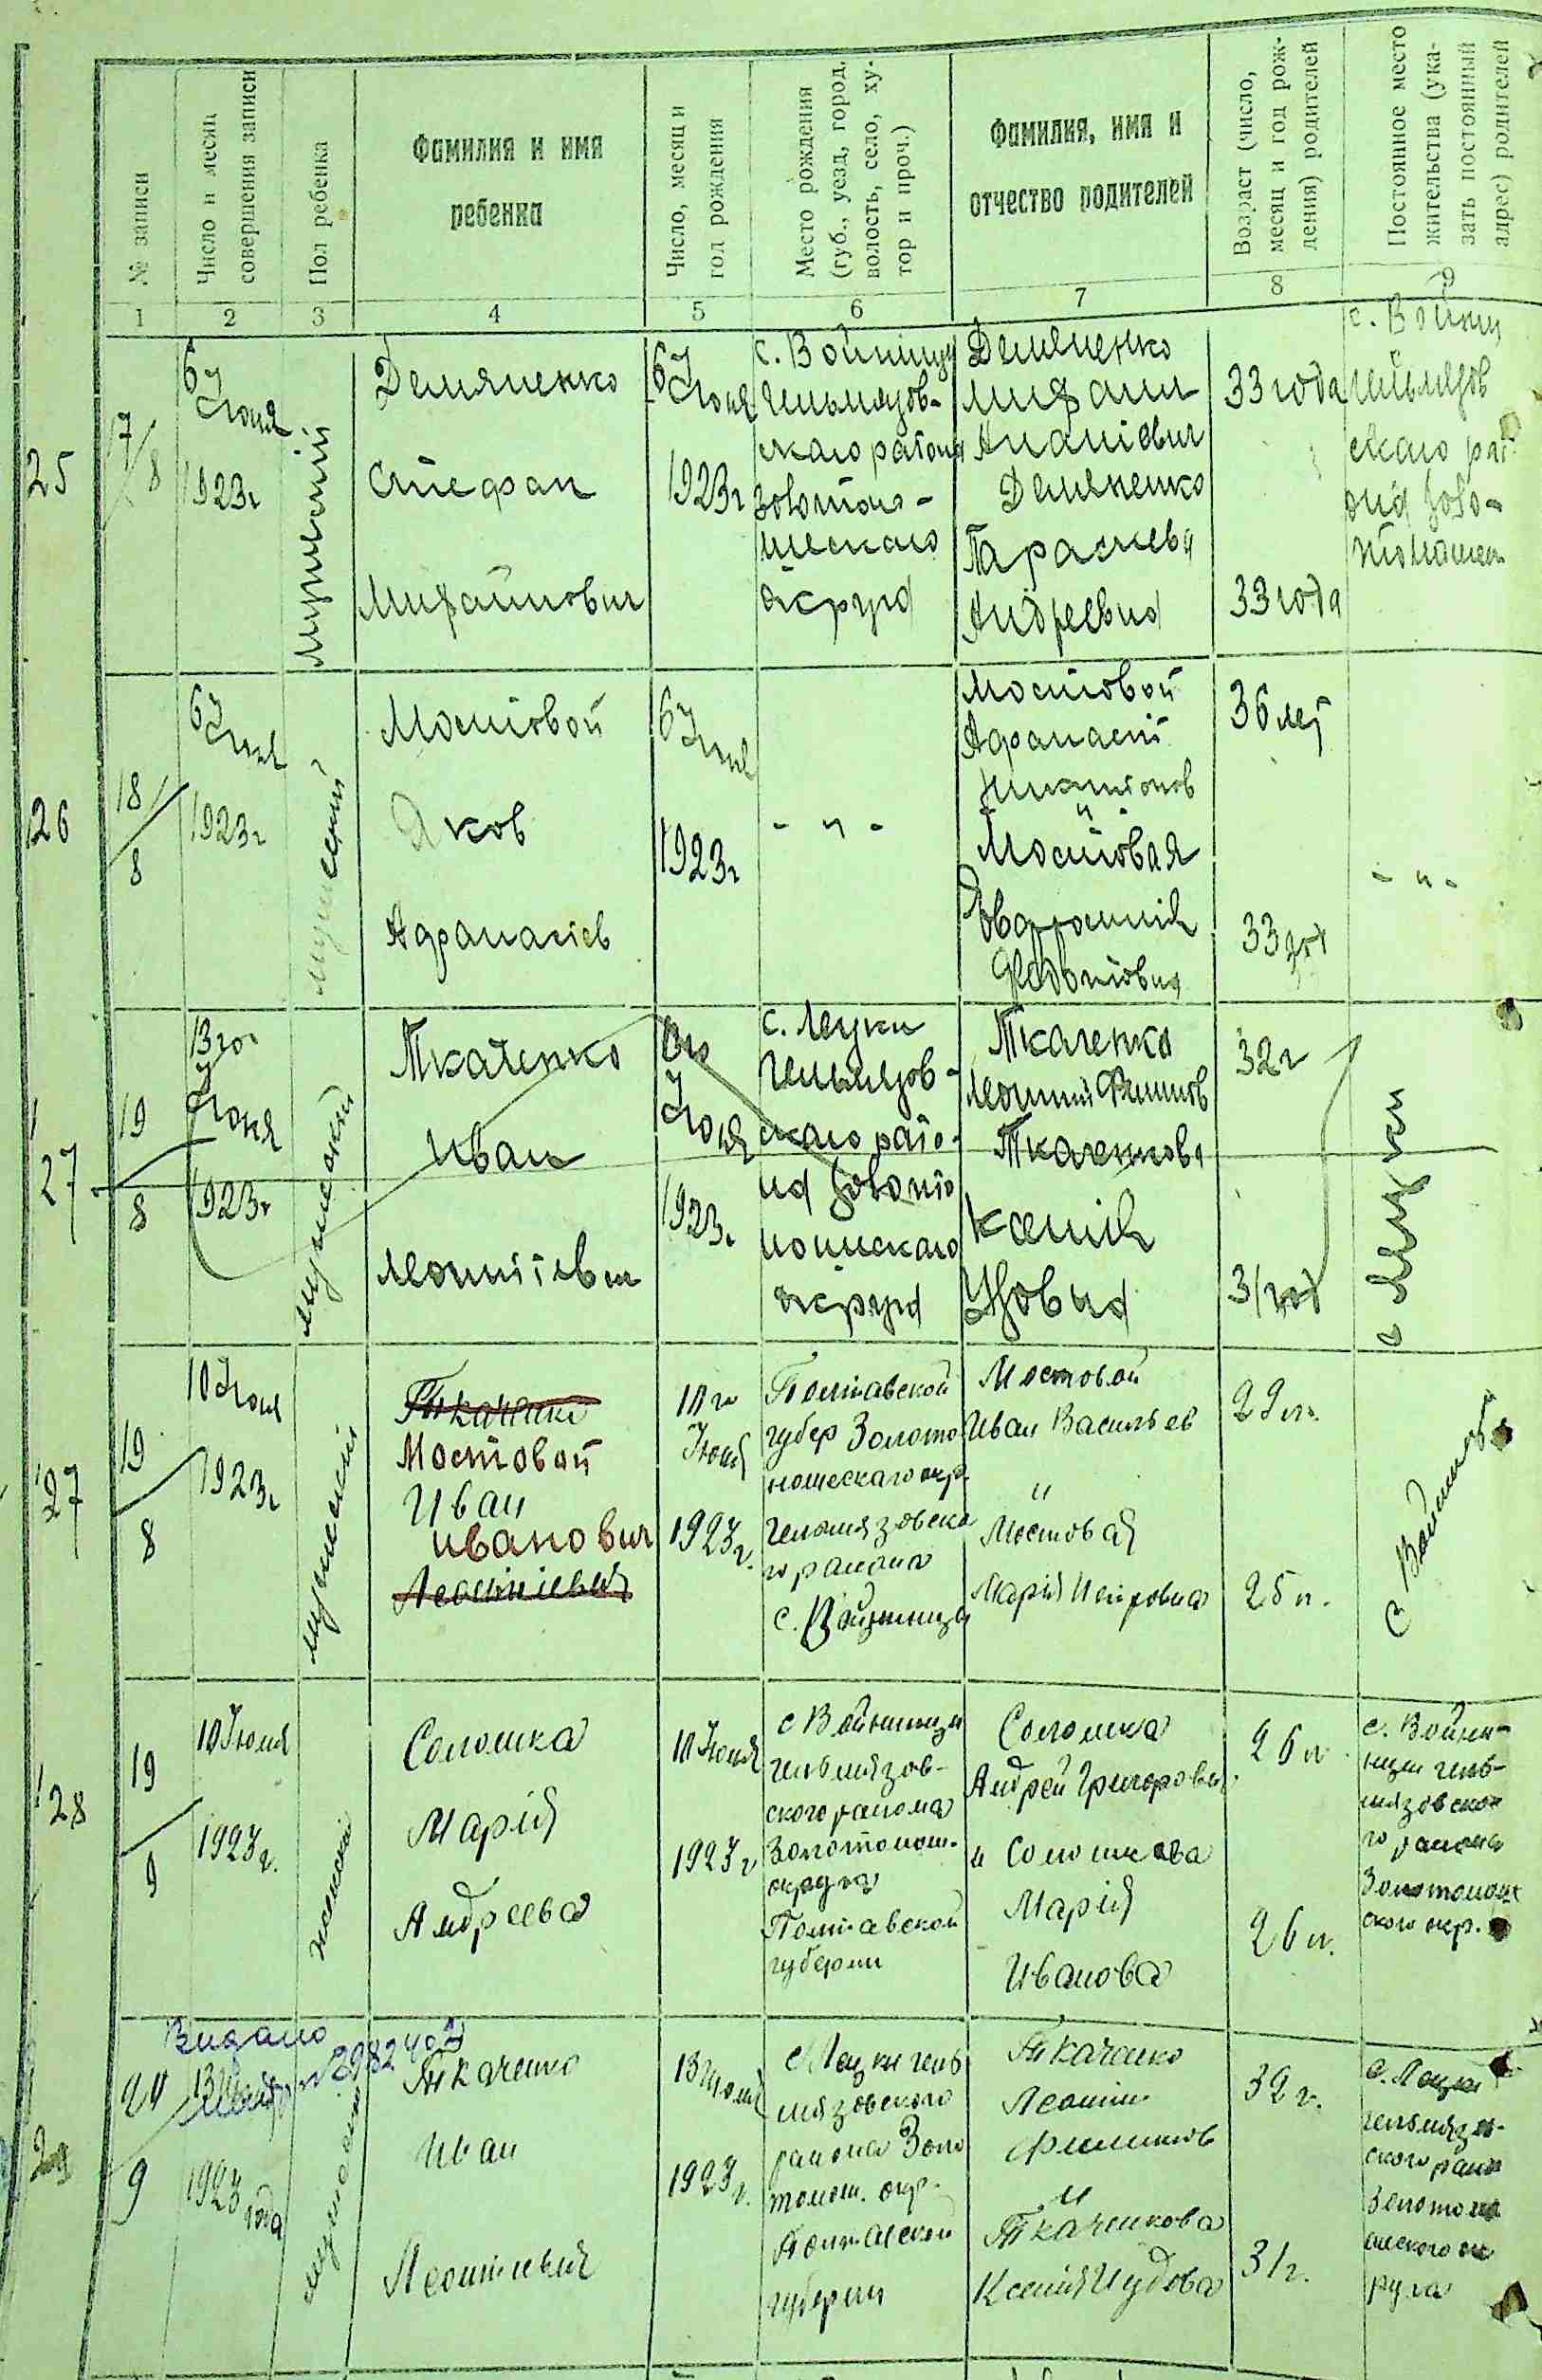 № записи
Число и месяц
совершения записи
Пол ребенка
Фамилия и имя
ребенка
Число, месяц и
год рождения
Место рождения
(губ., уезд, город,
волость, село, ху-
тор и проч.)
Фамилия, имя и
отчество родителей
Возраст (число,
месяц и год рож-
дения) родителей
Постоянное место
жительства (ука-
зать постоянный
адрес) родителей
1
2
3
4
5
6
7
8
9
25
17/8
6 Июня
1923г
мужеский
Демяненко
Стефан
6 Июня
1923г
с. Войници
Гельмязов-
скаго района
золотоно-
шескаго
округа
Демяненко
Ананіевич
Демяненко
Параскева
Андреевна
33 года
33 года
с. Войниц
гельмязов
скаго рай-
она Золо-
26
18/8
6 Июня
1923г
мужеский
Мостовой
Яков
Афанасіев
6 Июня
1923г
- " -
Мостовой
Афанасій
и
Мостовая
36 лет
33 год
- " -
27
19
8
13го
Июня
1923г
мужеский
Ткаченко
Иван
Леонтіевич
Июня
1923г
с. Лецки
Гельмязов-
скаго райо-
на Золото
ношскаго
округа
Ткаченко
Леонтий Филипов
Ткаченкова
Ксенія
32г
31 год
с Лецки
27
19
8
10 Июня
1923г
мужеский
Ткаченко
Мостовой
Иван
Иванович
Леонтиевич
10 го
Июня
1923г.
Полтавской
губер Золото
ношескаго окр.
гельмязовско
го района
с. Войницы
Мостовой
Иван Васильев
и
Мостовая
Марія Петровна
29 л.
25 л.
с. Войницы
28
19
9
10 Июня
1923г.
женский
Соломка
Марія
Андреева
10 Июня
1923г
с Войницы
гельмязов-
ского района
Золотонош.
округа
Полтавской
губерни
Соломка
Андрей Григоров
и Соломкова
Марія
Иванова
26 л
26 л.
с. Войни-
ницы гель-
мязовско-
го района
Золотонош
ского окр.
29
20
9
Видано
13
1923 года
мужеский
Ткаченко
Иван
Леонтиевич
13 Июня
1923г.
с Лецки гель
мязовского
района Золо
тонош. окр.
Полтавской
губерни
Ткаченко
Леонтий
Филипов
и
Ткаченкова
Ксения Иудова
32 г.
31 г.
с. Лецки
гельмязов-
ского райо
Золотоно
шского ок
руга